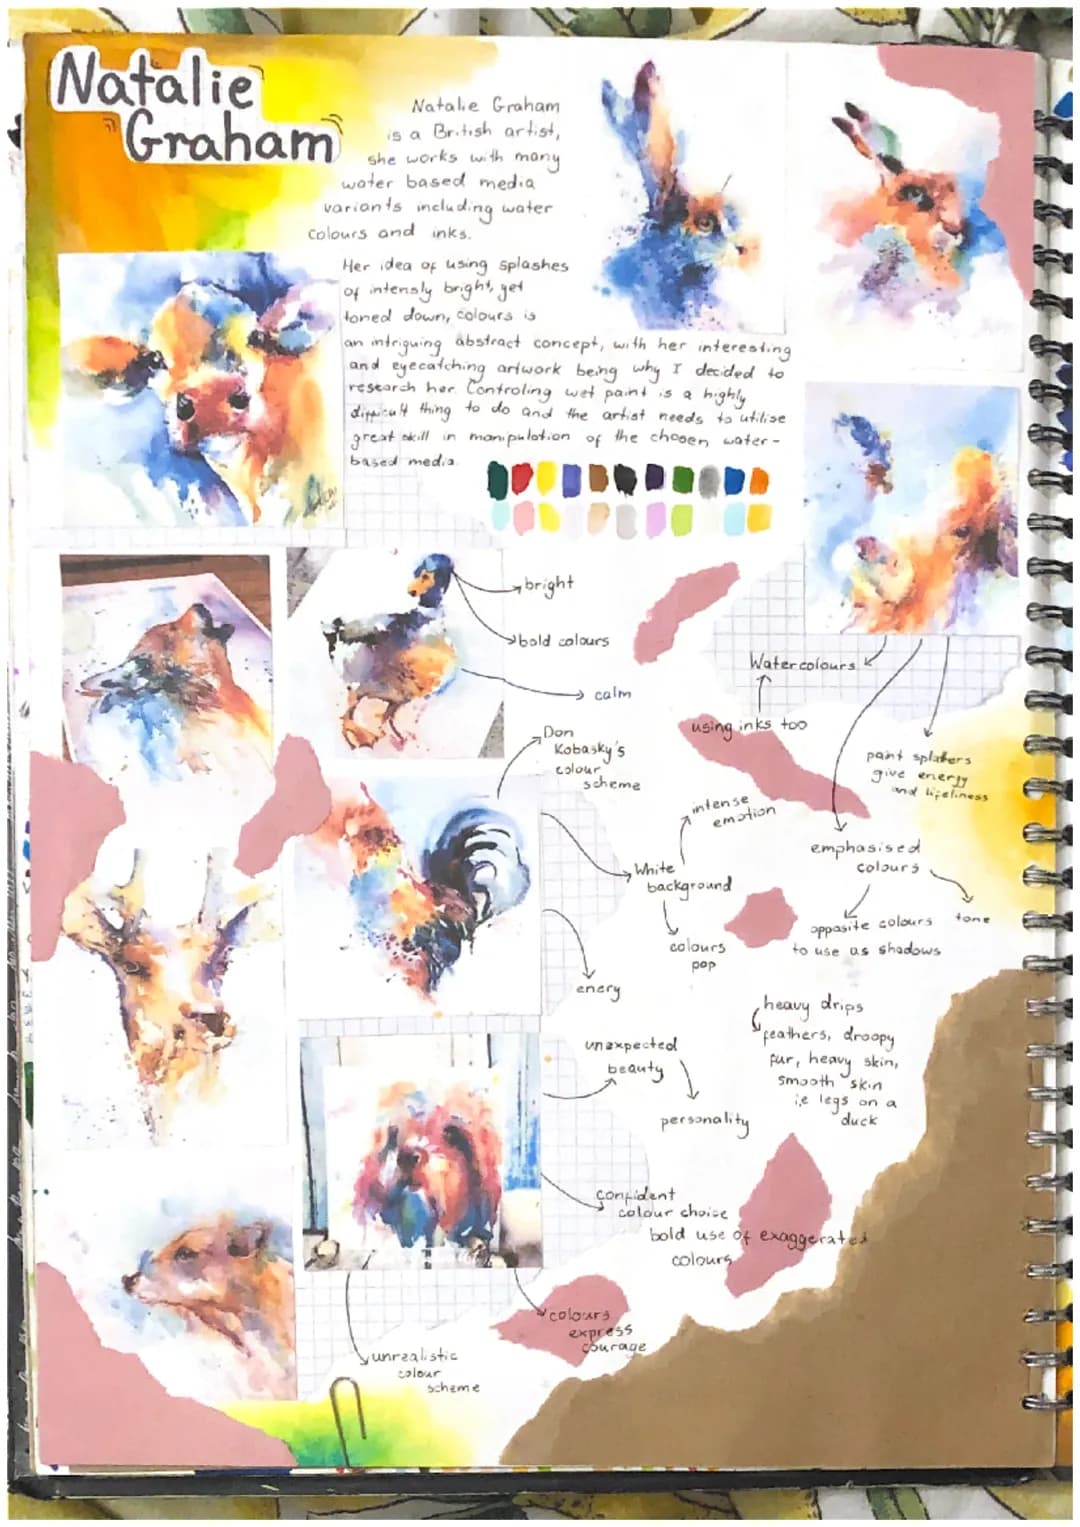 Natalie
Graham
Natalie Graham
is a British artist,
she works with many
water based media
variants including water
colours and inks.
Her idea of using splashes
of intensly bright, yet
toned down, colours is
an intriguing abstract concept, with her interesting
and eyecatching artwork being why I decided to
research her. Controling wet paint is a highly
difficult thing to do and the artist needs to utilise
great skill in manipulation of the chosen water-
based media.
bright
bold colours
calm
Watercolours
using inks too
paint splatters
give energy
and lifeliness
Don
Kobasky's
colour
scheme
intense
emotion
White
background
colours
pop
emphasised
colours
opposite colours
to use as shadows
tone
enery
heavy drips
feathers, droopy
fur, heavy skin,
smooth skin
i.e legs on a
duck
unexpected
beauty
personality
confident
colour choice
bold use of exaggerated
colours
colours
express
courage
unrealistic
colour
scheme